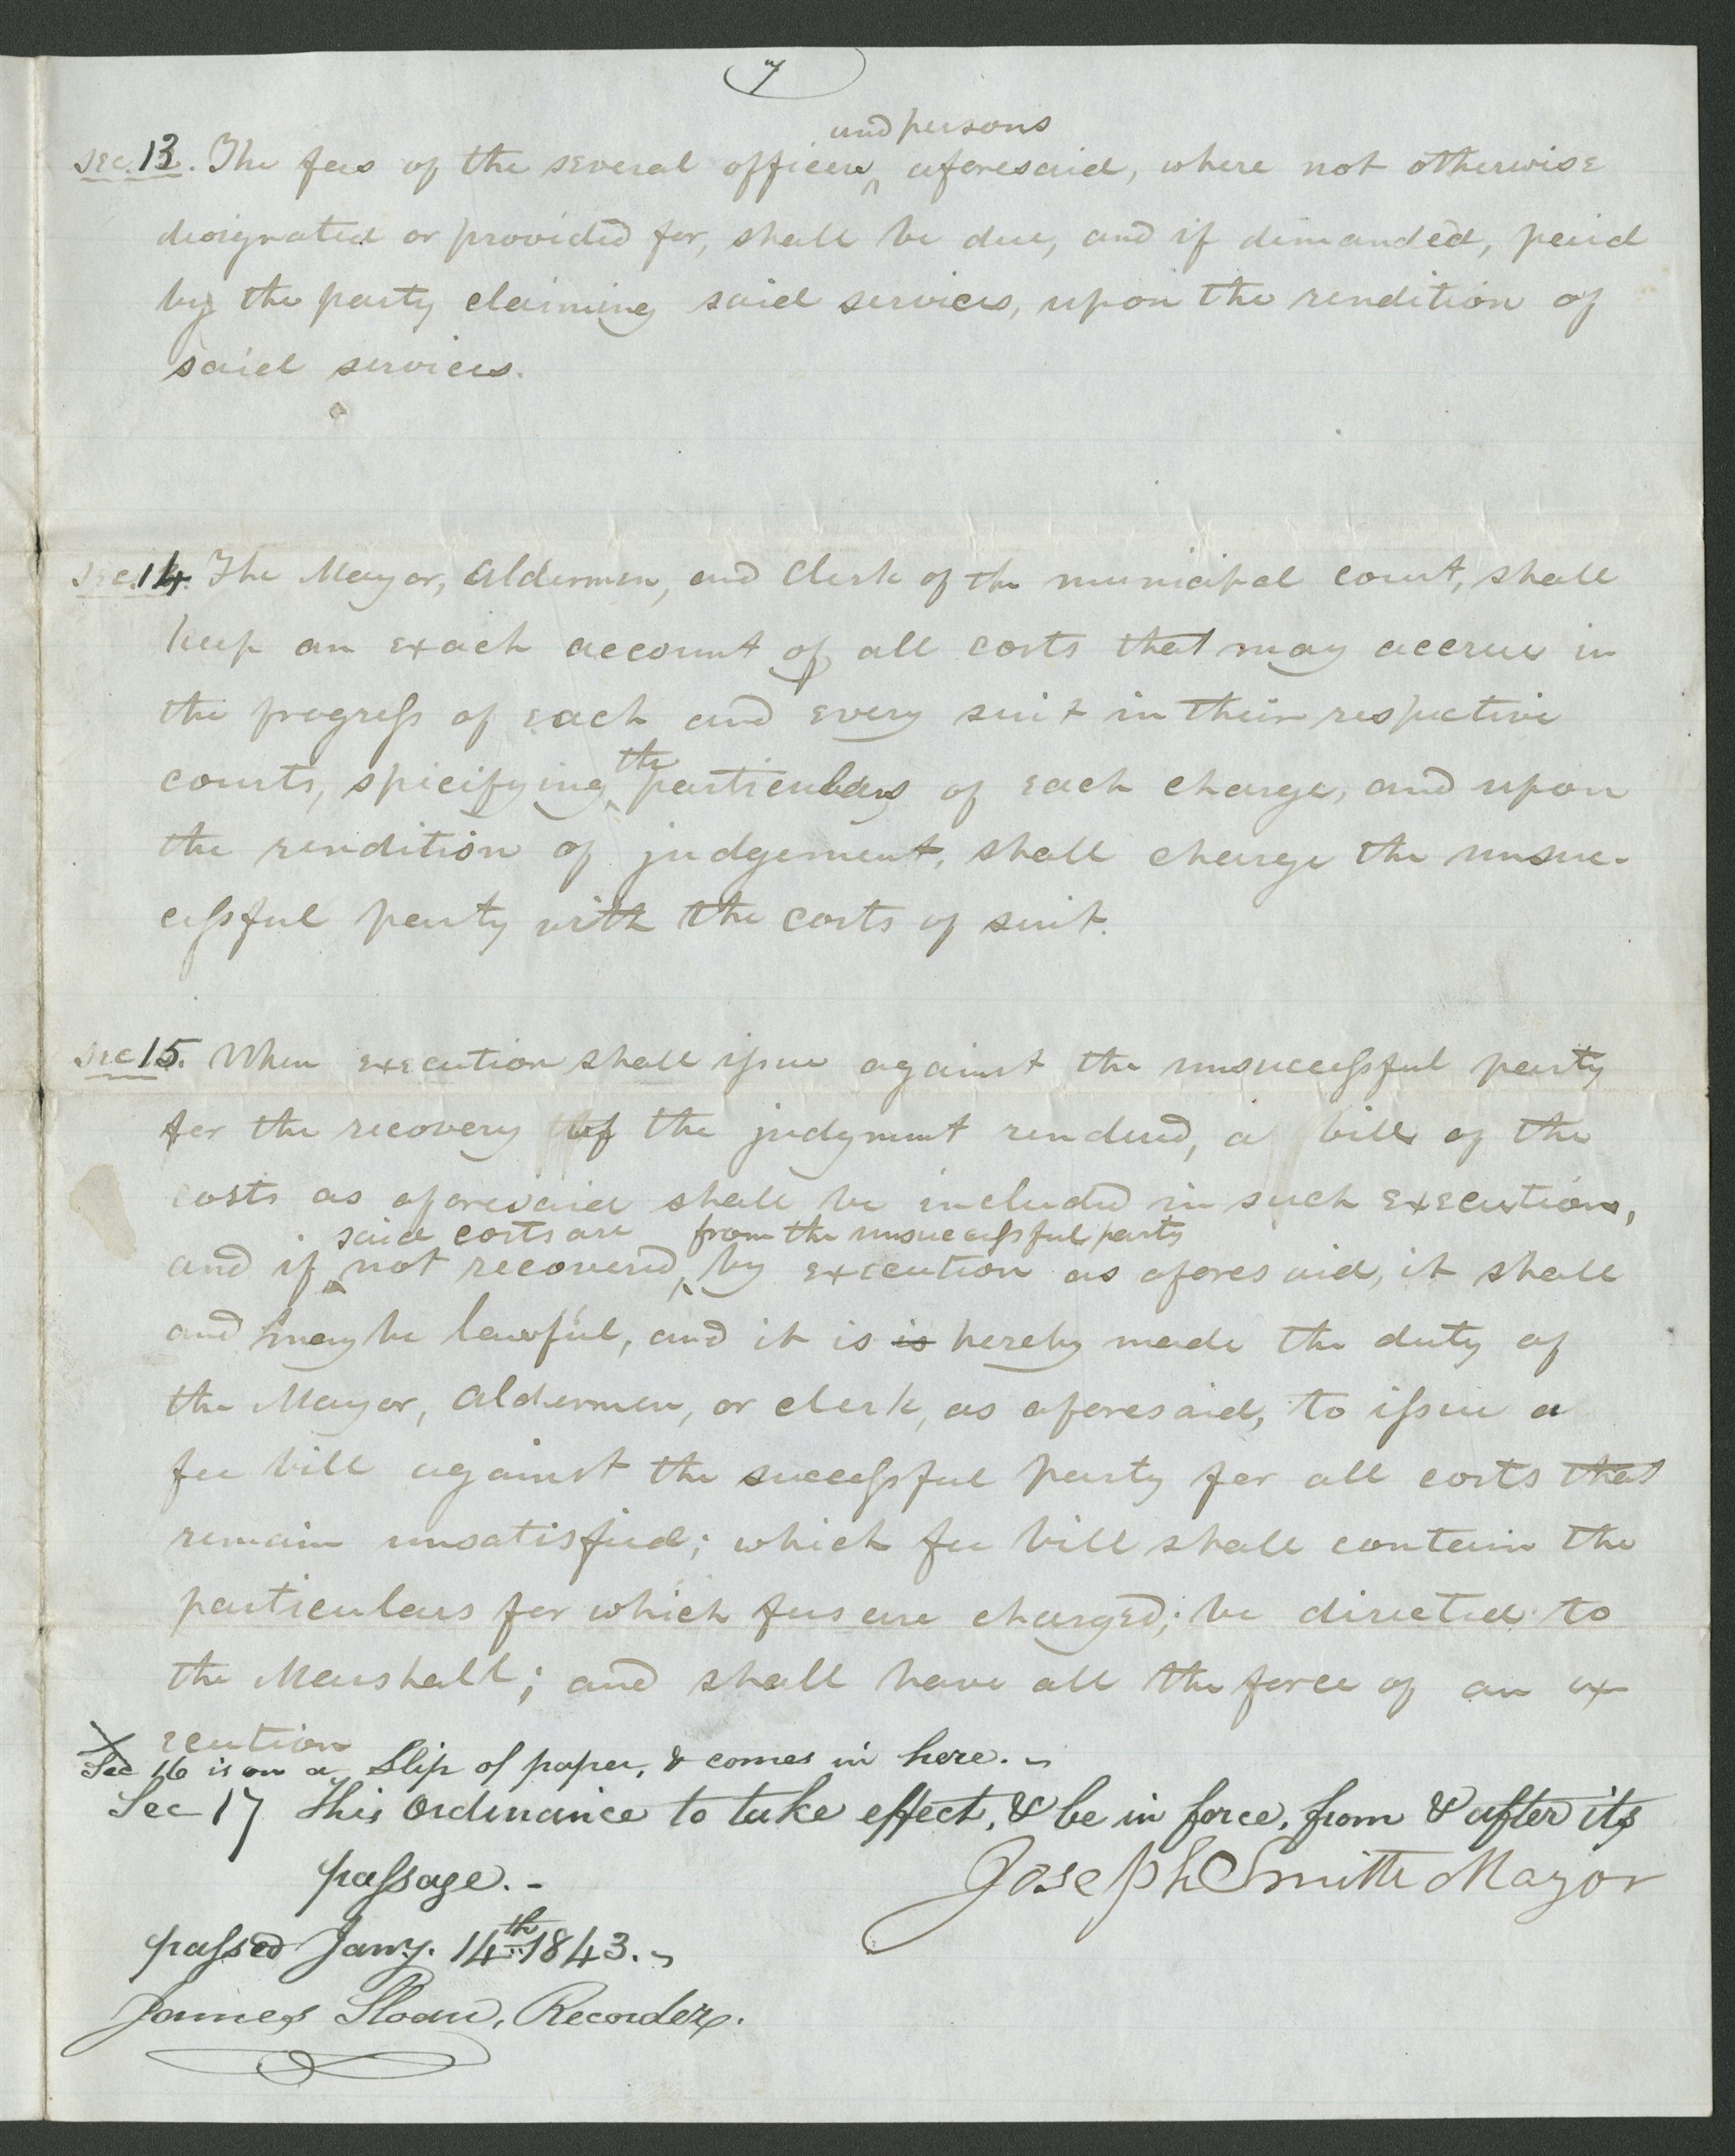 7
and persons
Sec. 13. The fees of the several officers ^ aforesaid, where not otherwise
designated or provided for, shall be due, and if demanded, paid
by the party claiming said services, upon the rendition of
said services.
Sec. 14. The Mayor, Aldermen, and Clerk of the municipal court, shall
keep an exact account of all costs that may accrue in
the progress of each and every suit in their respective
the
courts, specifying ^ particulars of each charge, and upon
the rendition of judgement, shall charge the unsuc-
cessful party with the costs of suit.
Sec 15. When execution shall issue against the unsuccessful party
for the recovery of the judgment rendered, a bill of the
costs as aforesaid shall be included in such execution,
said costs are from the unsuccessful party
and if ^ not recovered ^ by execution as aforesaid, it shall
and may be lawful, and it is is hereby made the duty of
the Mayor, Aldermen, or clerk, as aforesaid, to issue a
fee bill against the successful party for all costs that
remain unsatisfied; which fee bill shall contain the
particulars for which fees are charged; be directed to
the Marshall; and shall have all the force of an ex-
ecution
X Sec 16 is on a slip of paper, & comes in here.
Sec 17 This Ordinance to take effect, & be in force, from & after its
passage. -
Joseph Smith Mayor
passed Jany. 14th 1843.
James Sloan, Recorder.